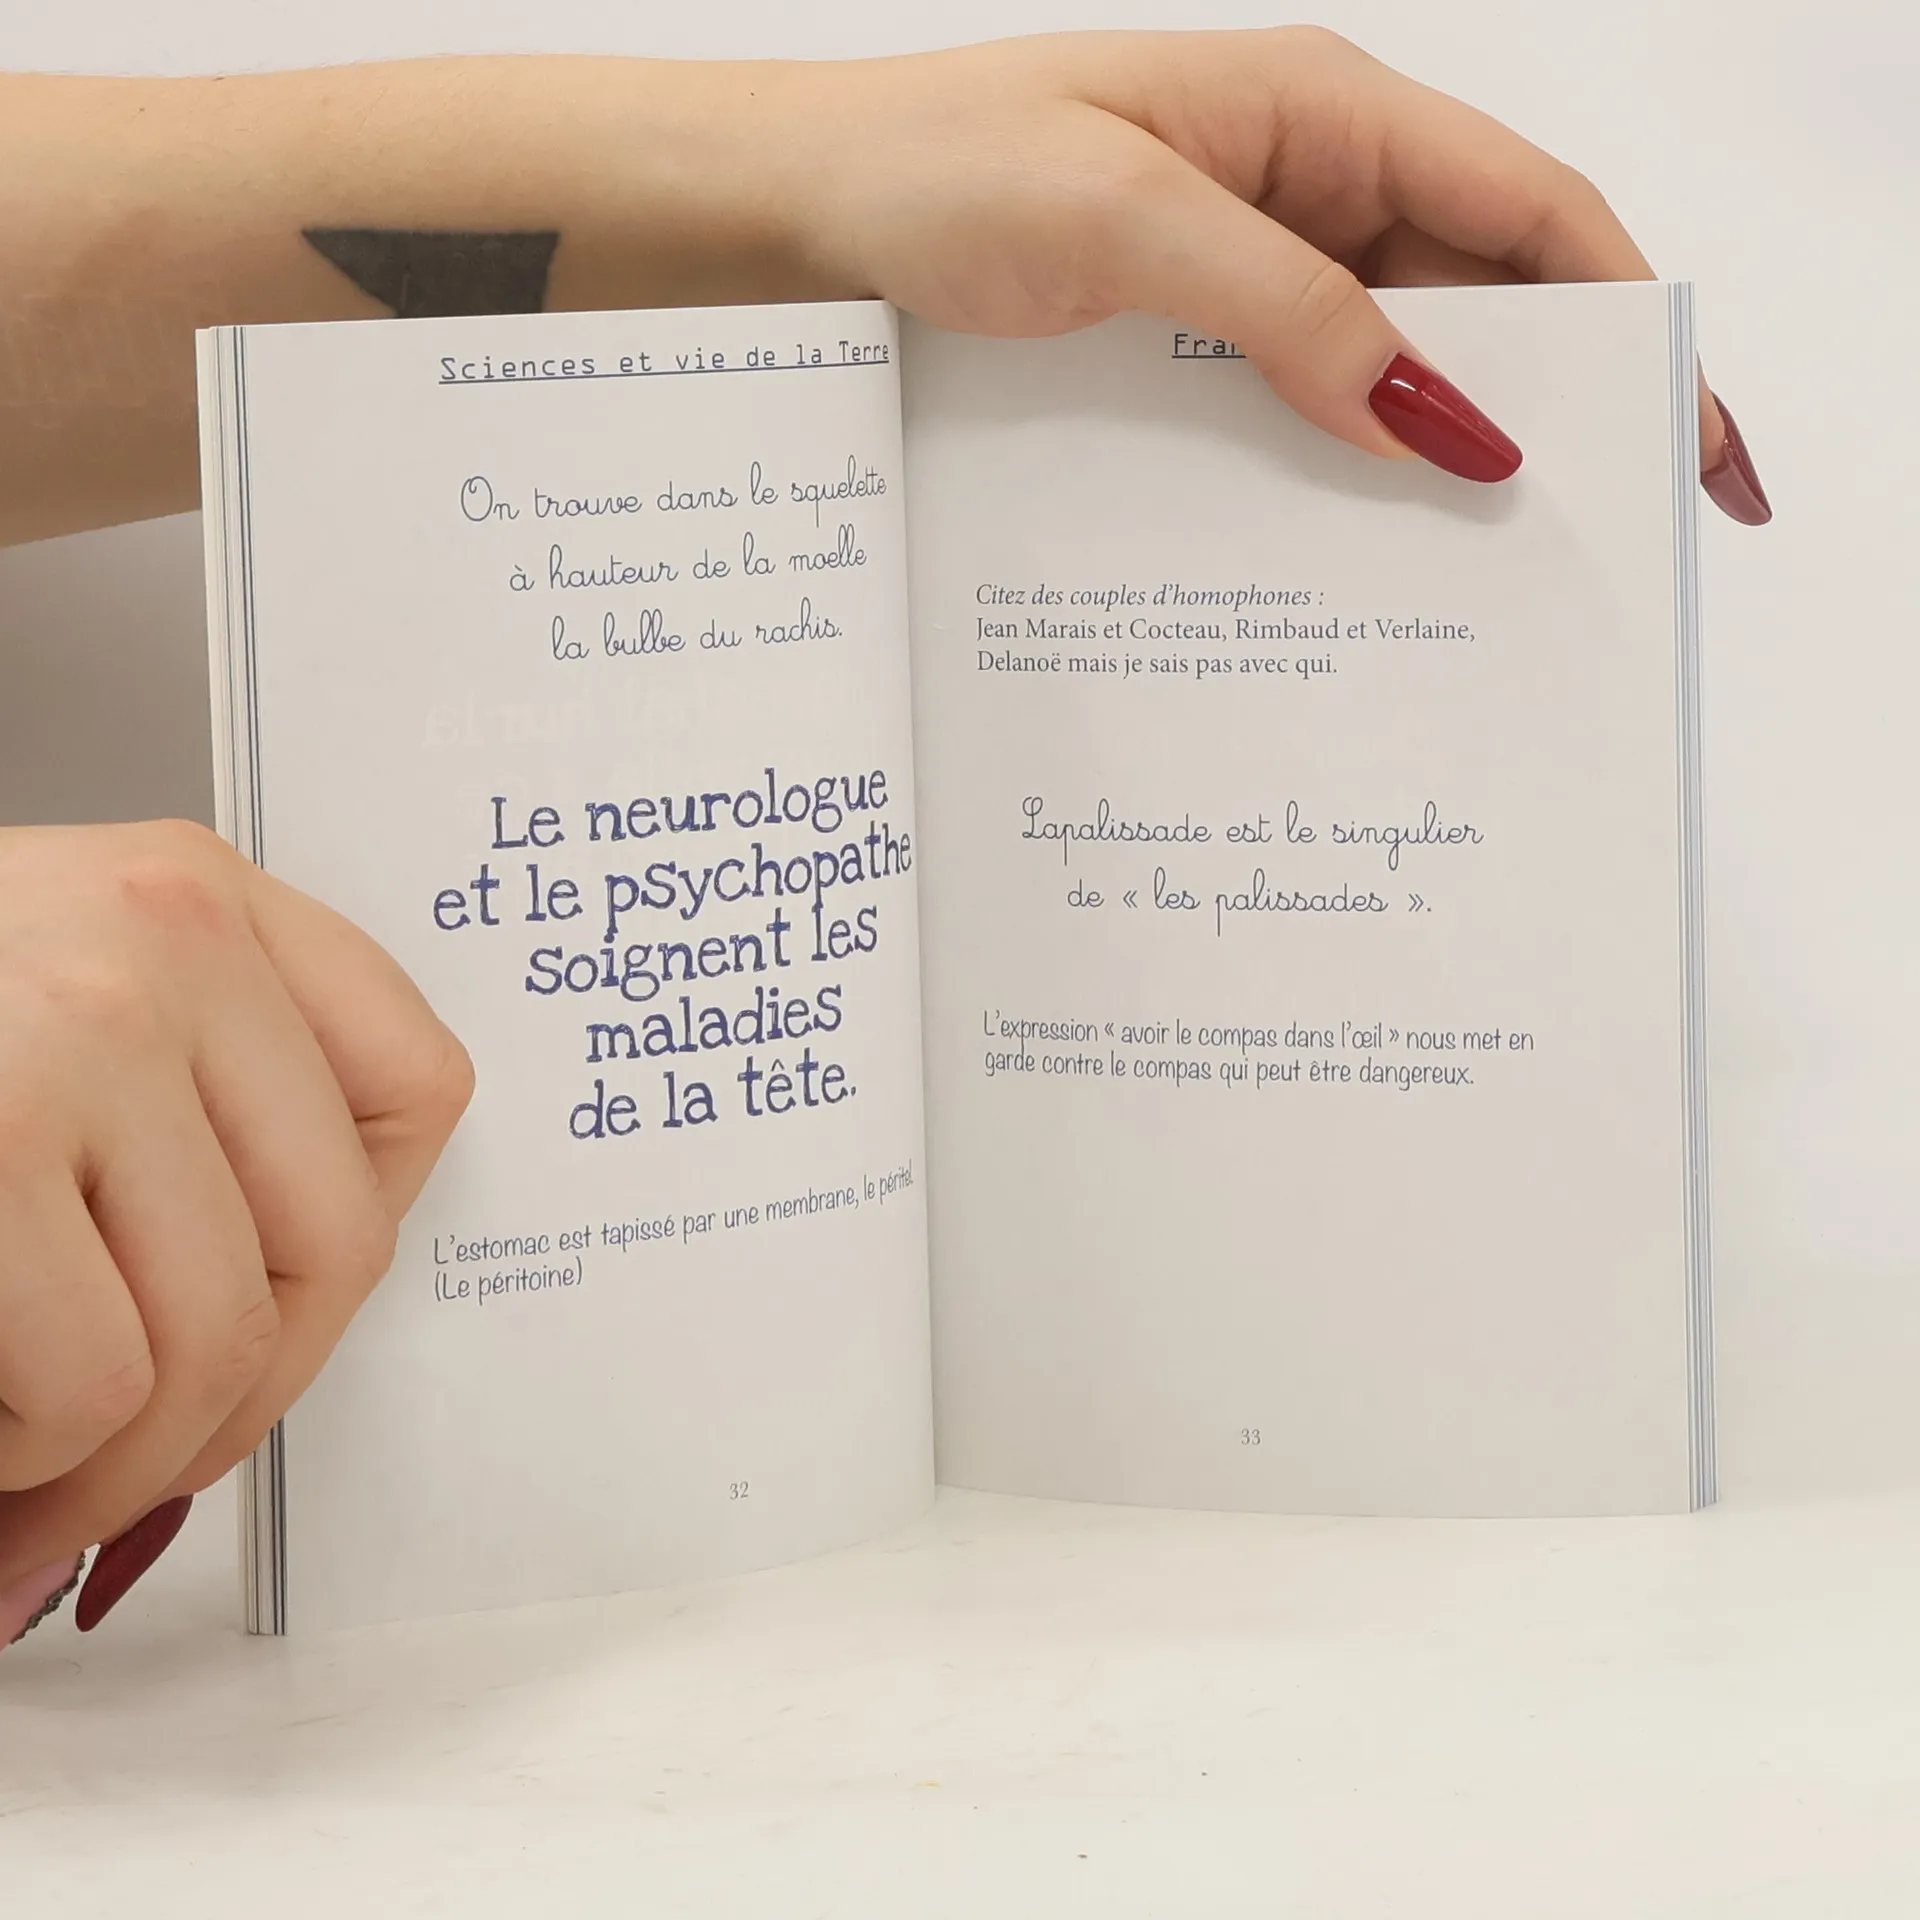 Sciences et vie de la Terre
On trouve dans le squelette
à hauteur de la moelle
la bulbe du rachis.
Le neurologue
et le psychopathe
soignent les
maladies
de la tête.
L'estomac est tapissé par une membrane, le péritel.
(Le péritoine)
32
Citez des couples d'homophones :
Jean Marais et Cocteau, Rimbaud et Verlaine,
Delanoë mais je sais pas avec qui.
Lapalissade est le singulier
de « les palissades ».
L'expression « avoir le compas dans l'œil » nous met en
garde contre le compas qui peut être dangereux.
33